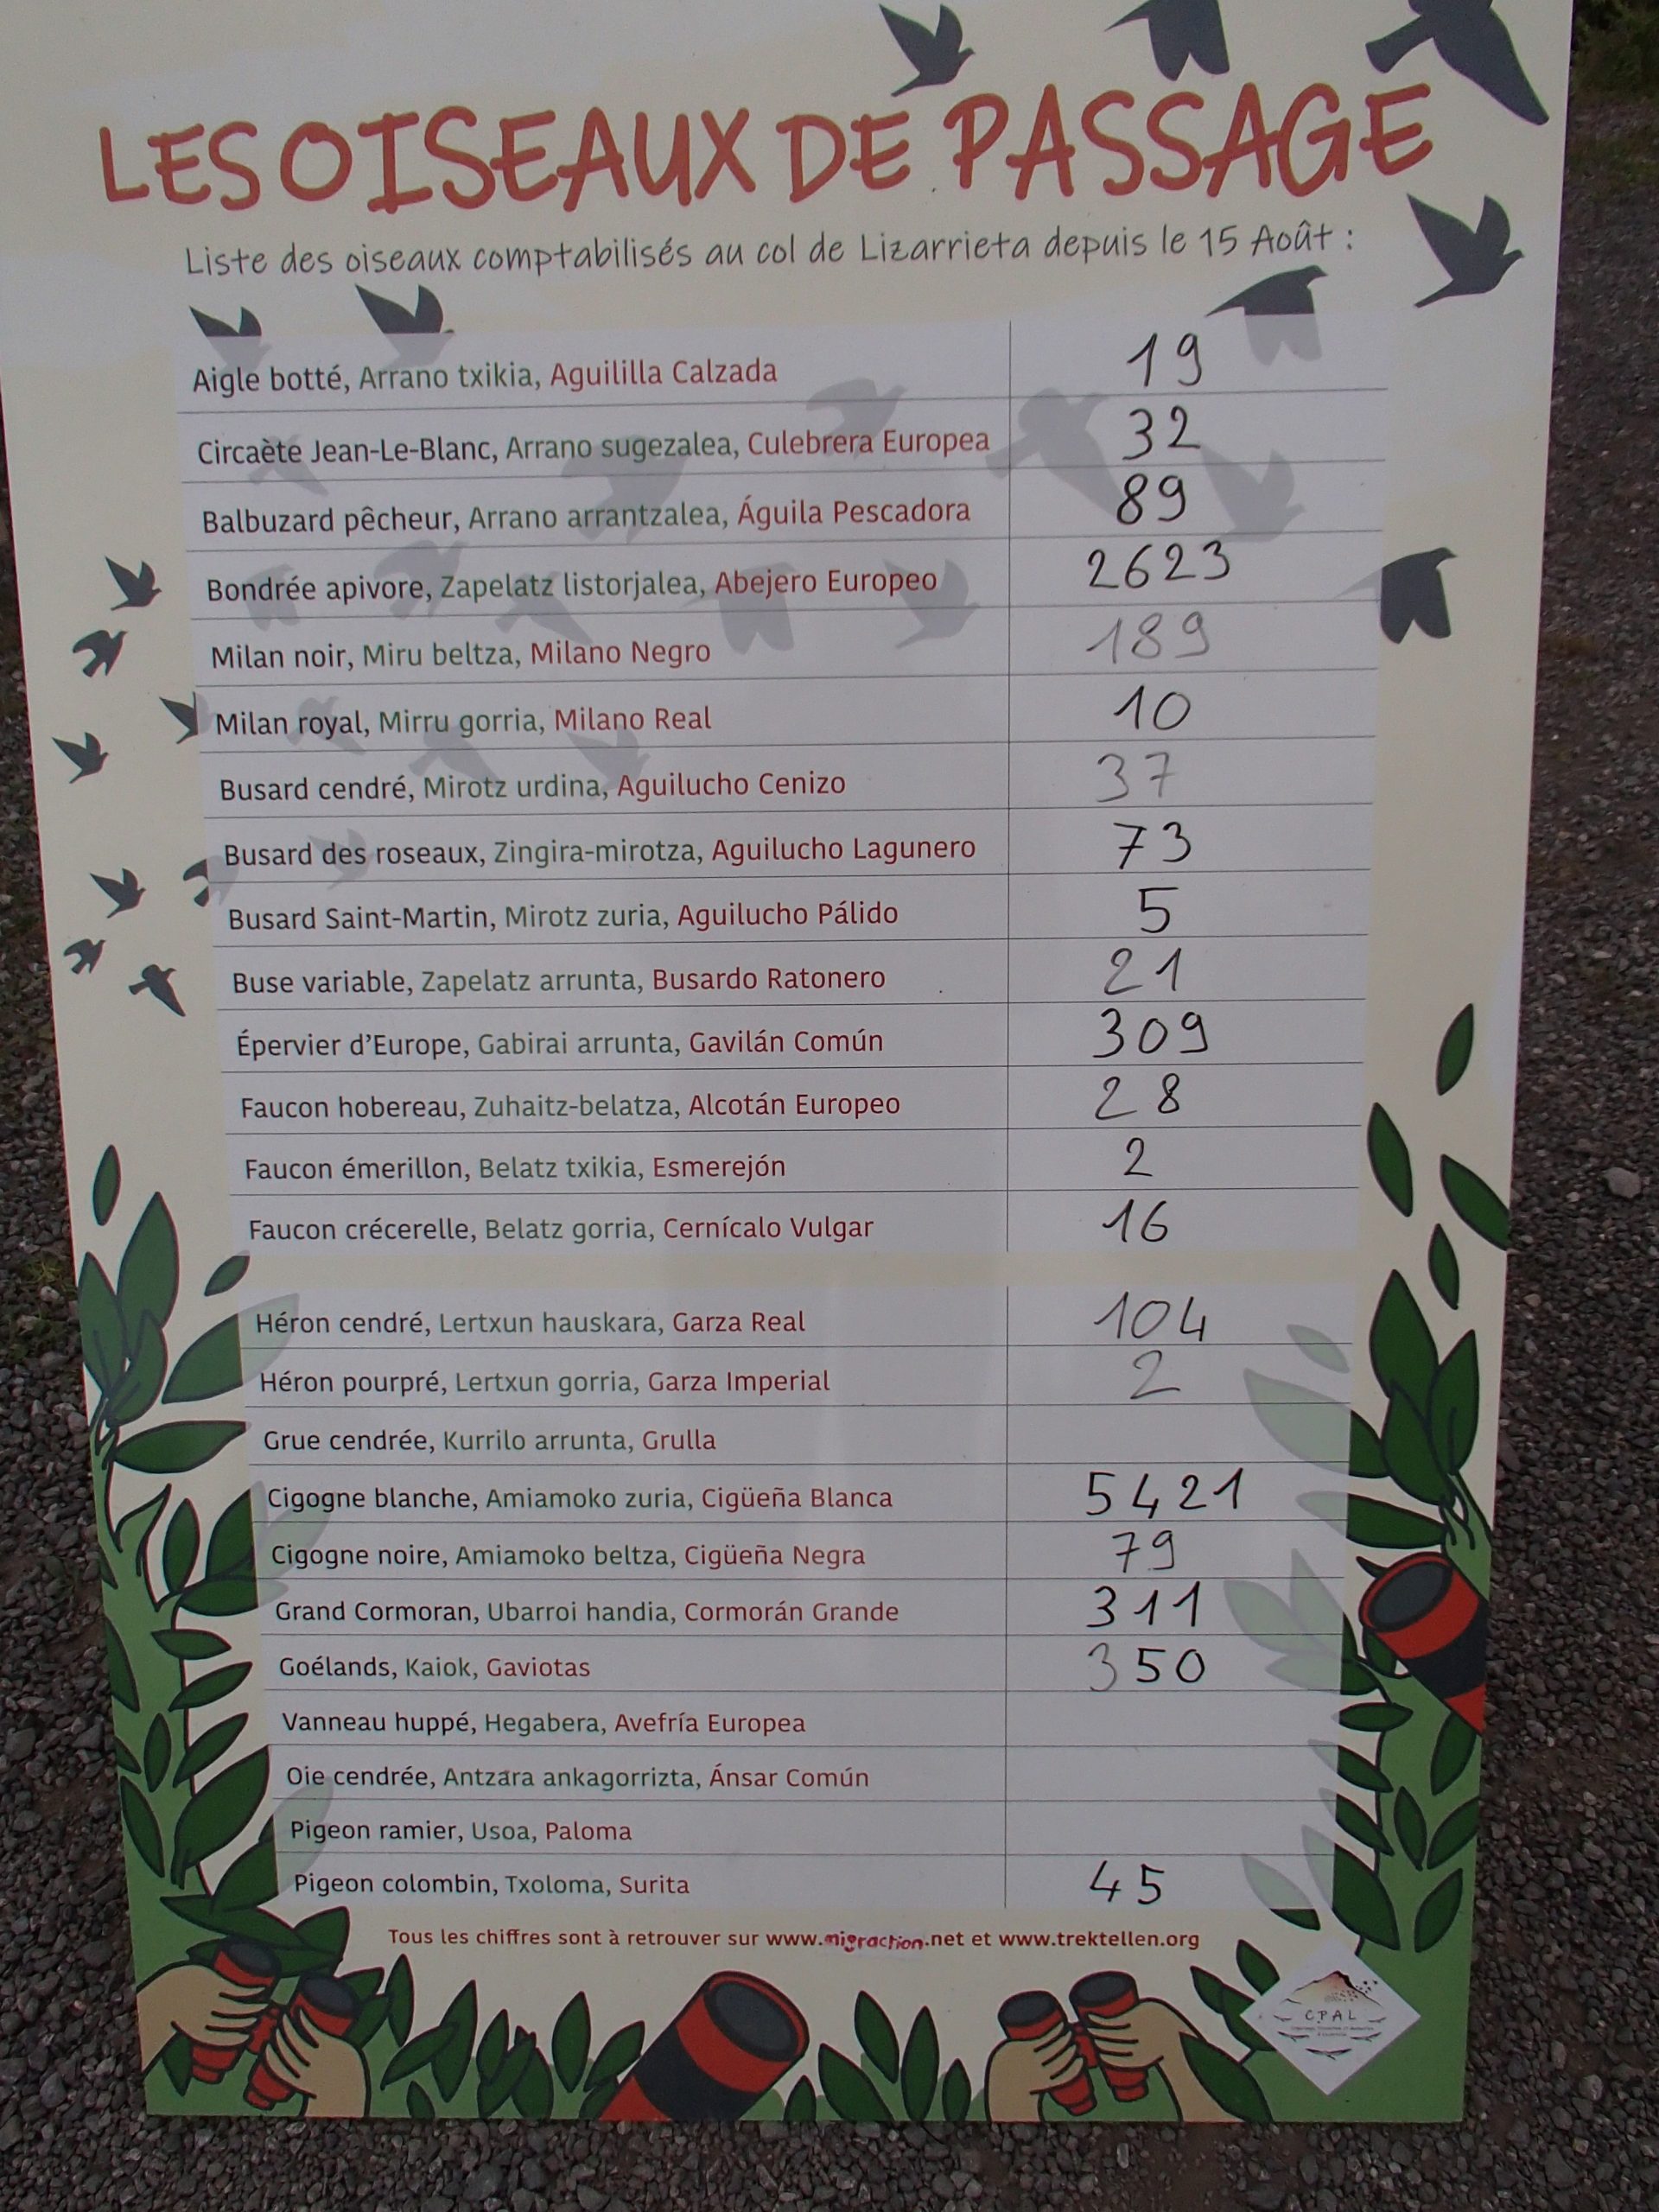 LES OISEAUX DE PASSAGE
Liste des oiseaux comptabilisés au col de Lizarrieta depuis le 15 Août :
Aigle botté, Arrano txikia, Aguililla Calzada 19
Circaète Jean-Le-Blanc, Arrano sugezalea, Culebrera Europea 32
Balbuzard pêcheur, Arrano arrantzalea, Águila Pescadora 89
Bondrée apivore, Zapelatz listorjalea, Abejero Europeo 2623
Milan noir, Miru beltza, Milano Negro 189
Milan royal, Mirru gorria, Milano Real 10
Busard cendré, Mirotz urdina, Aguilucho Cenizo 37
Busard des roseaux, Zingira-mirotza, Aguilucho Lagunero 73
Busard Saint-Martin, Mirotz zuria, Aguilucho Pálido 5
Buse variable, Zapelatz arrunta, Busardo Ratonero 21
Épervier d'Europe, Gabirai arrunta, Gavilán Común 309
Faucon hobereau, Zuhaitz-belatza, Alcotán Europeo 28
Faucon émerillon, Belatz txikia, Esmerejón 2
Faucon crécerelle, Belatz gorria, Cernícalo Vulgar 16
Héron cendré, Lertxun hauskara, Garza Real 104
Héron pourpré, Lertxun gorria, Garza Imperial 2
Grue cendrée, Kurrilo arrunta, Grulla
Cigogne blanche, Amiamoko zuria, Cigüeña Blanca 5421
Cigogne noire, Amiamoko beltza, Cigüeña Negra 79
Grand Cormoran, Ubarroi handia, Cormorán Grande 311
Goélands, Kaiok, Gaviotas 350
Vanneau huppé, Hegabera, Avefría Europea
Oie cendrée, Antzara ankagorrizta, Ánsar Común
Pigeon ramier, Usoa, Paloma
Pigeon colombin, Txoloma, Surita 45
Tous les chiffres sont à retrouver sur www.migraction.net et www.trektellen.org
CPAL